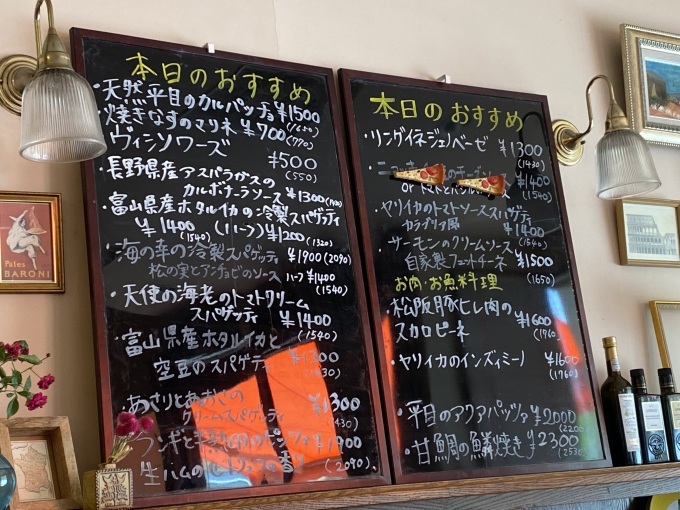 本日のおすすめ
・天然平目のカルパッチョ ¥1500
(1650)
焼きなすのマリネ ¥700
(770)
ヴィシソワーズ ¥500
(550)
・長野県産アスパラガスの
カルボナーラソース ¥1300
・富山県産ホタルイカの冷製スパゲッティ
¥1400 (ハーフ)¥1200
(1540) (1320)
・海の幸の冷製スパゲッティ ¥1900(2090)
松の実とアンチョビのソース ハーフ¥1400
(1540)
・天使の海老のトマトクリーム
スパゲッティ ¥1400
(1540)
・富山県産ホタルイカと
空豆のスパゲティ ¥1300
(1430)
・あさりとあおさの
クリームスパゲッティ ¥1300
(1430)
¥1900
生ハムの
(2090)
本日のおすすめ
・リングイネジェノベーゼ ¥1300
(1430)
or トマトと
¥1400
(1540)
・ヤリイカのトマトソーススパゲティ
カラブリア風 ¥1400
(1540)
・サーモンのクリームソース
自家製フェットチーネ ¥1500
(1650)
お肉・お魚料理
・松阪豚ヒレ肉の
スカロピーネ ¥1600
(1760)
・ヤリイカのインズィミーノ ¥1600
(1760)
・平目のアクアパッツァ ¥2000
(2200)
・甘鯛の鱗焼き ¥2300
(2530)
Pates
BARONI